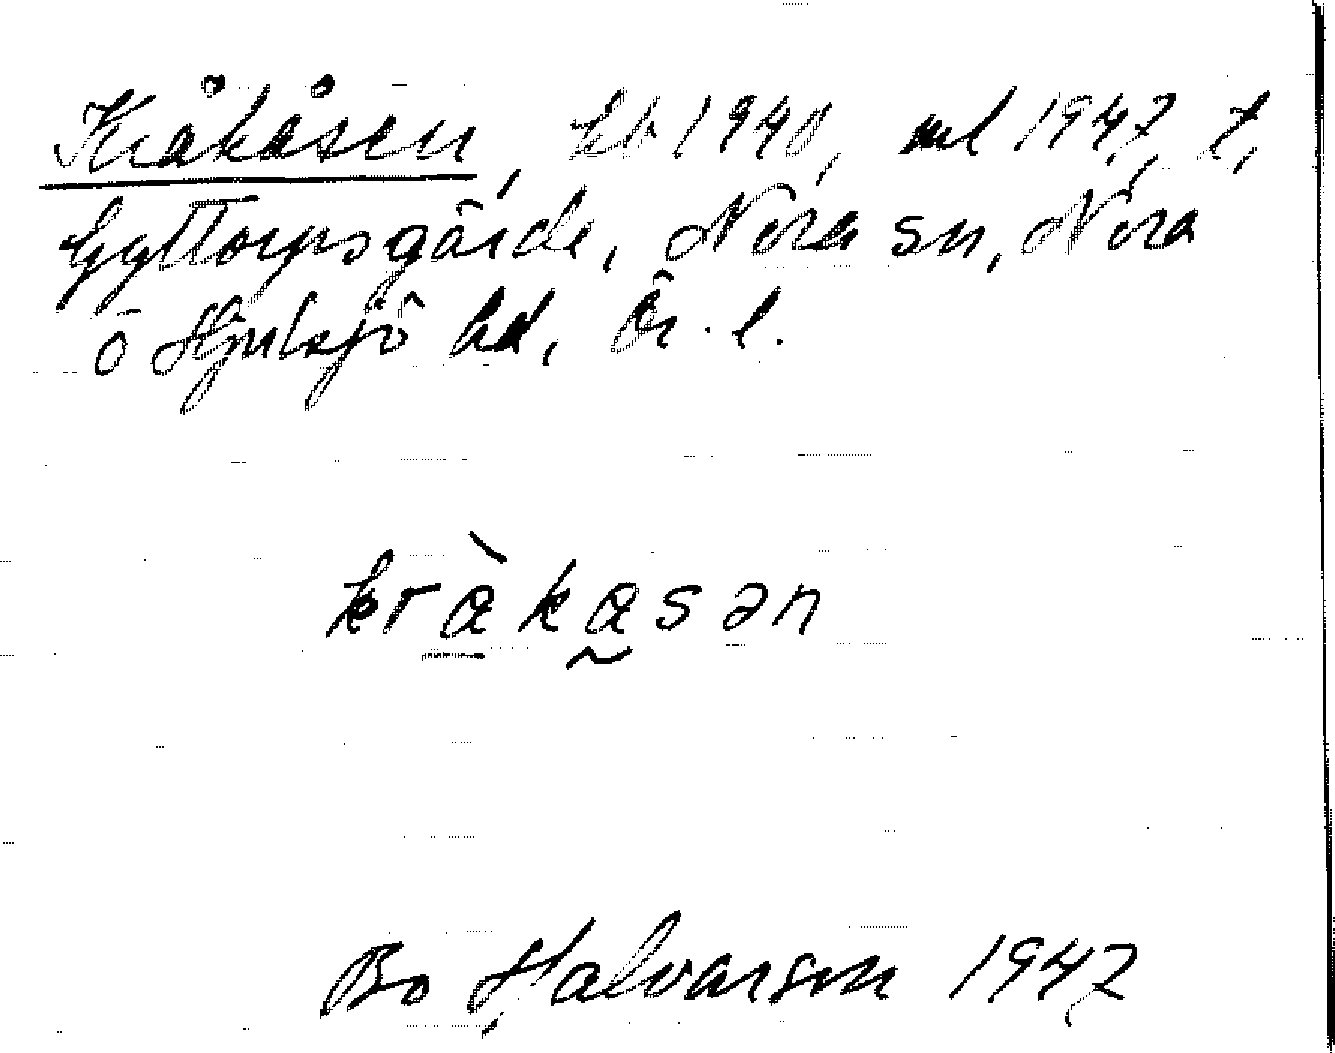 Kråkåsen, hb 1940, ml 1947, t.
Gyttorpsgärde, Nora sn, Nora
o Hjulsjö hd, Ör. l.
kràkasən
Bo Halvarson 1947